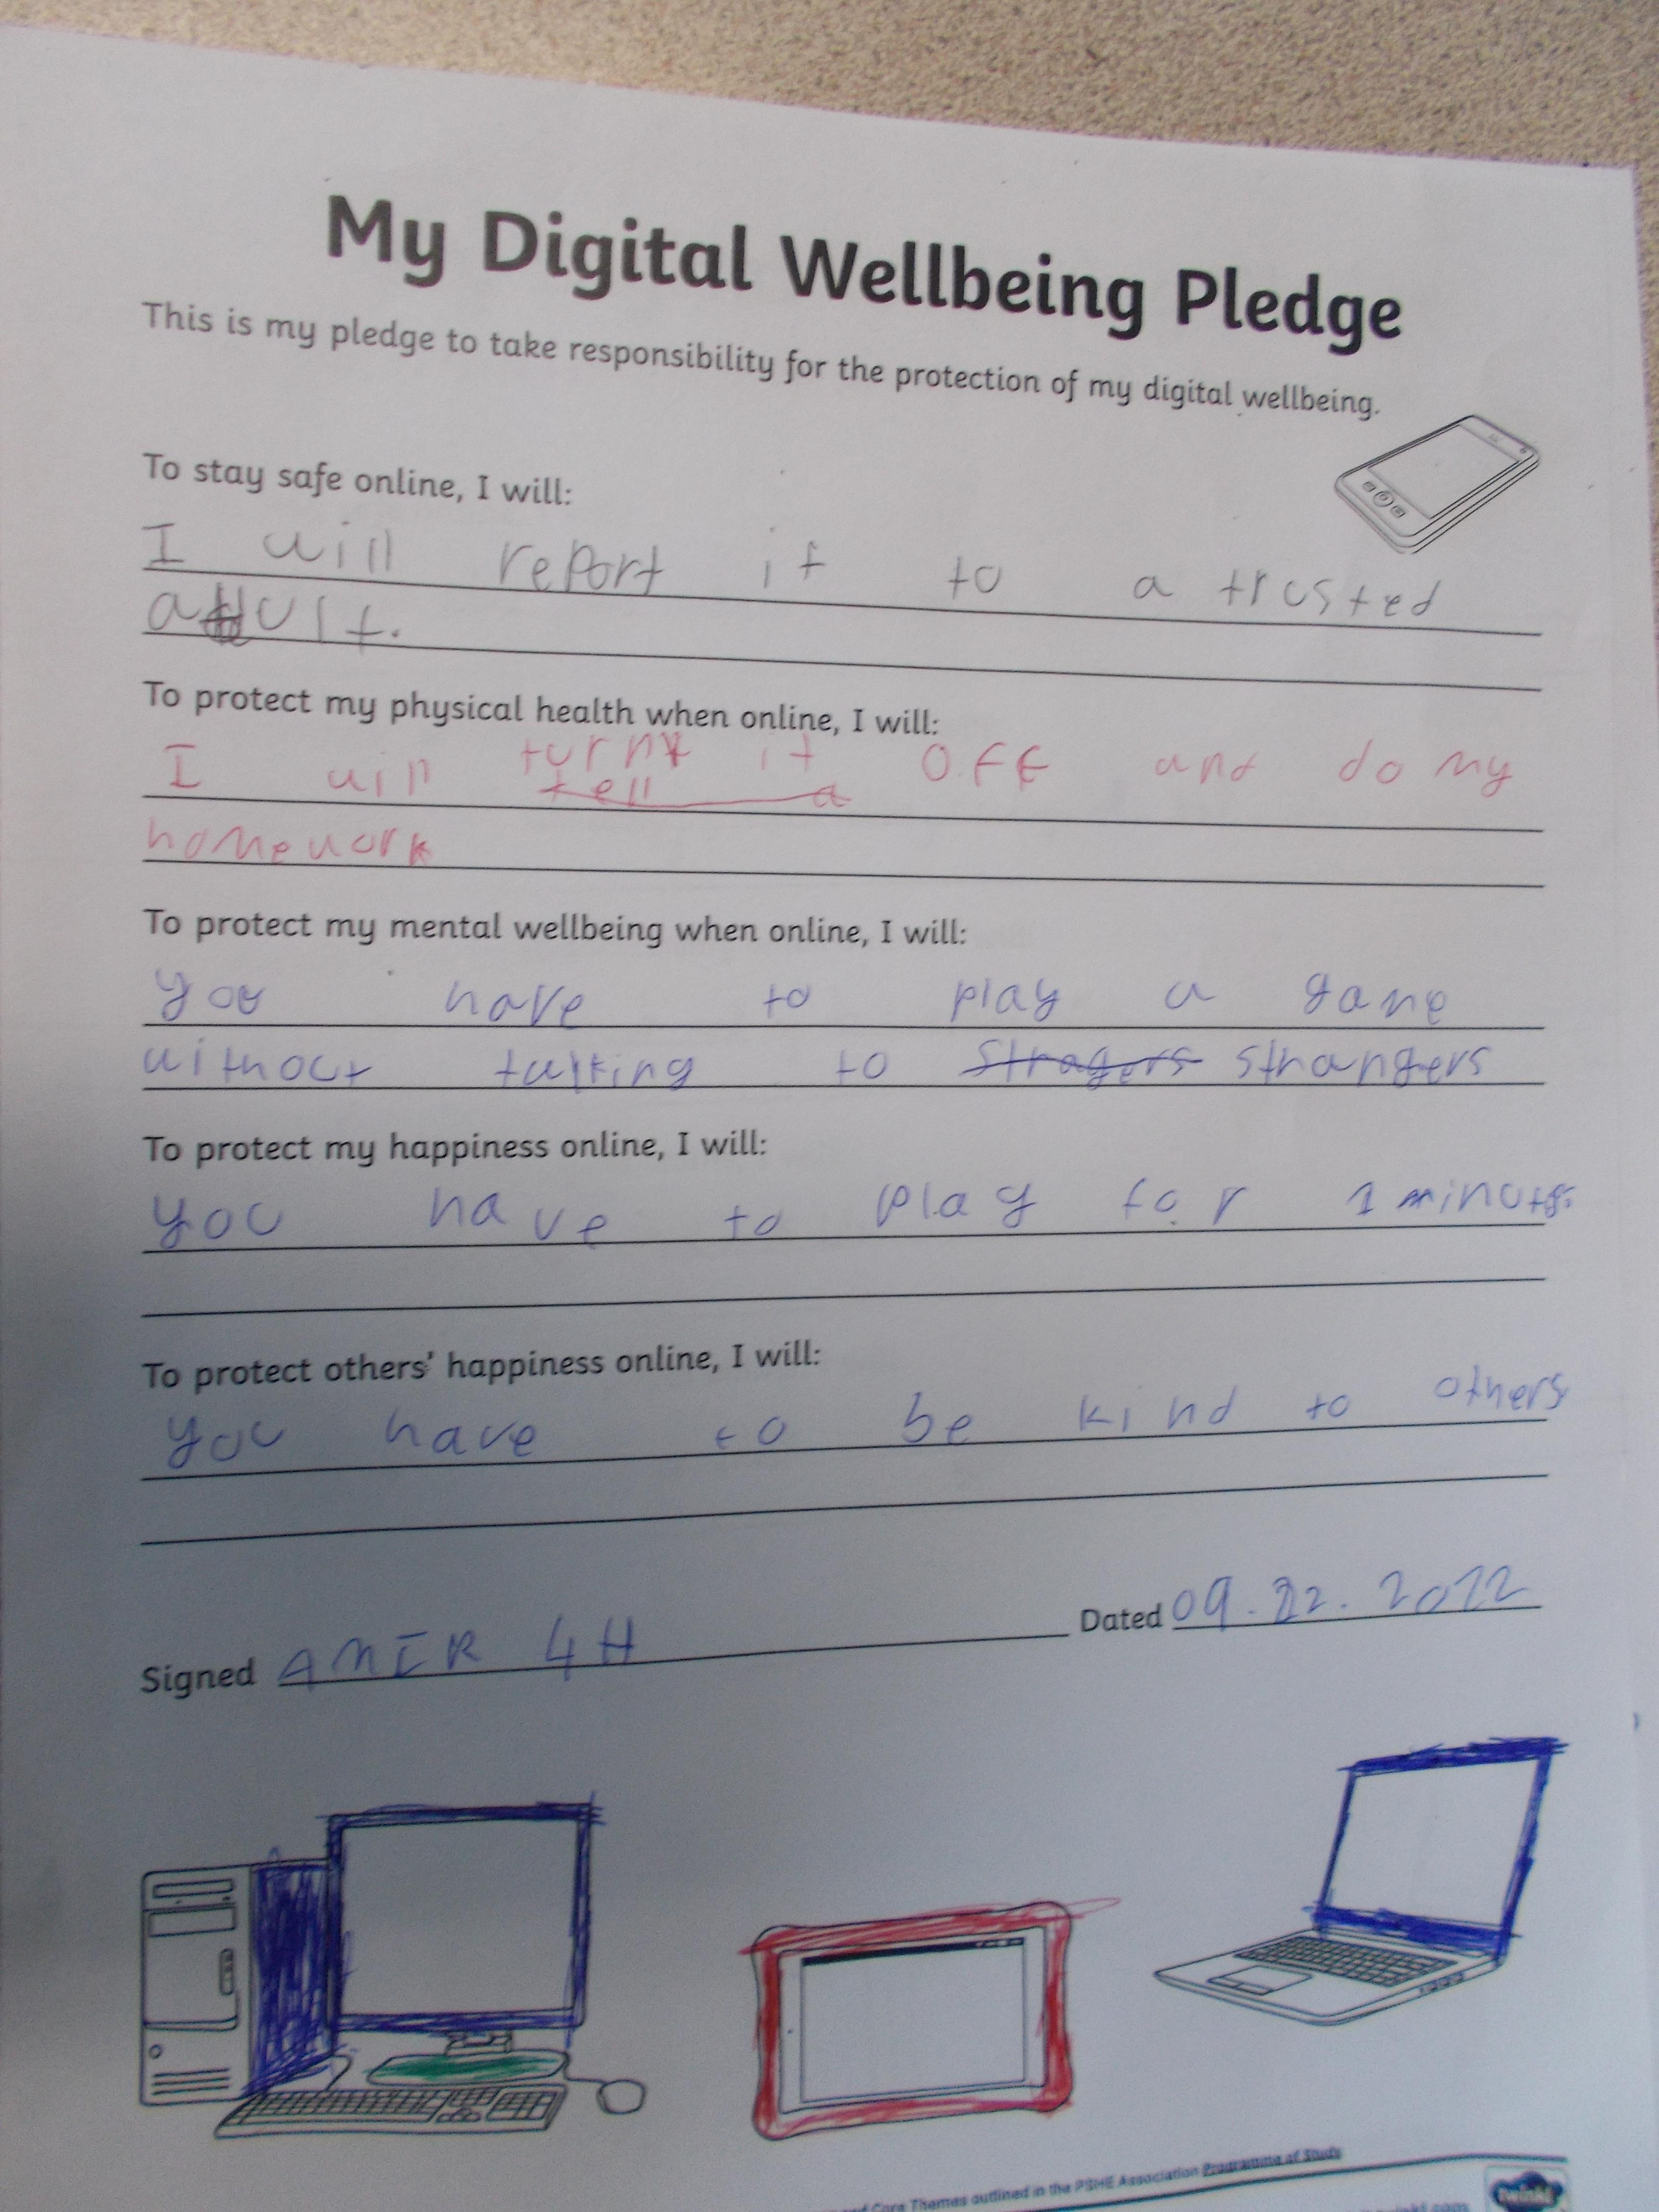 My Digital Wellbeing Pledge
This is my pledge to take responsibility for the protection of my digital wellbeing.
To stay safe online, I will:
I will report it to a trusted
adult.
To protect my physical health when online, I will:
I will turn it off and do my
tell a
homework
To protect my mental wellbeing when online, I will:
you have to play a game
without talking to stragers strangers
To protect my happiness online, I will:
you have to play for 1 minute
To protect others' happiness online, I will:
you have to be kind to others
Signed AMIR 4H
Dated 09. .2022
Core Themes outlined in the PSHE Association Programme of Study
twinkl